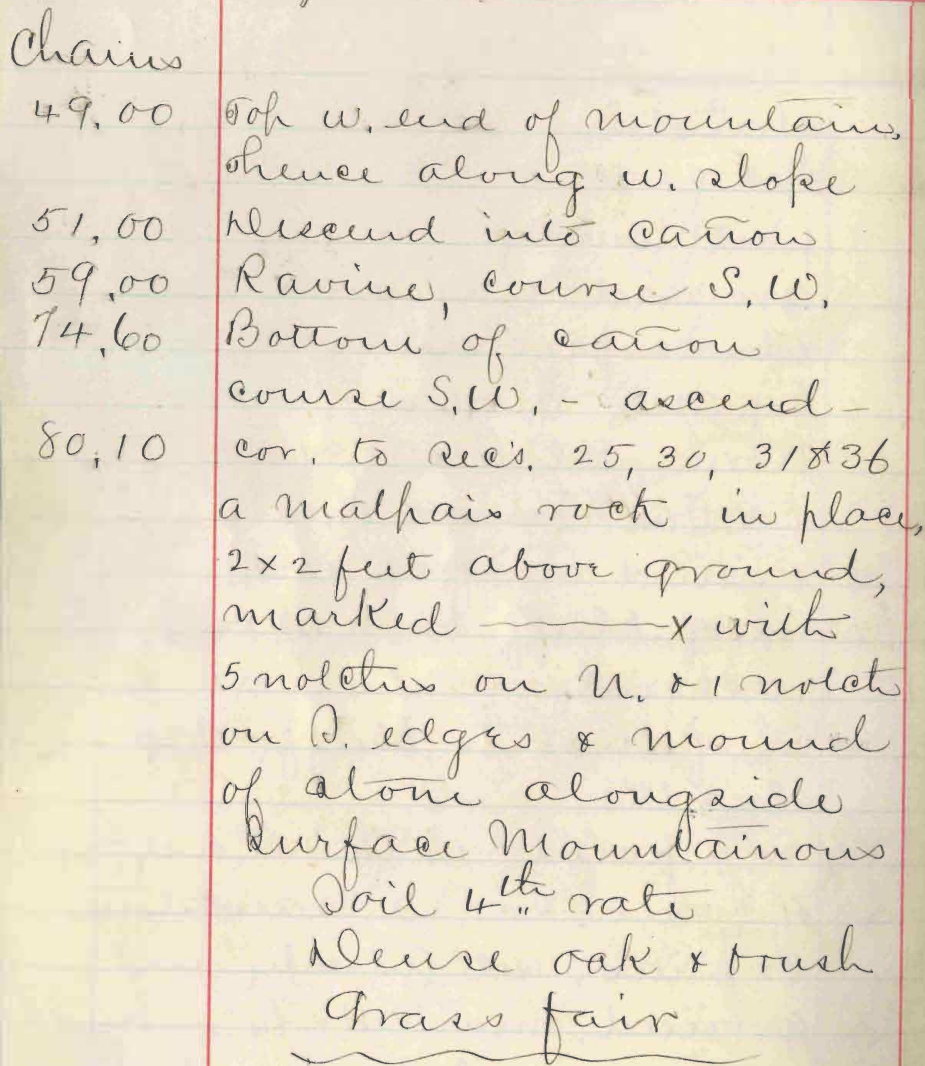 Chains
49.00 Top W. end of mountain,
thence along W. slope
51.00 Descend into cañon
59.00 Ravine, course S.W.
74.60 Bottom of cañon
course S.W. - ascend -
80.10 cor. to Sec's. 25, 30, 31 & 36
a malpais rock in place,
2 x 2 feet above ground,
marked ——— x with
5 notches on N. & 1 notch
on S. edges & mound
of stone alongside
Surface Mountainous
Soil 4th rate
Dense oak & brush
Grass fair